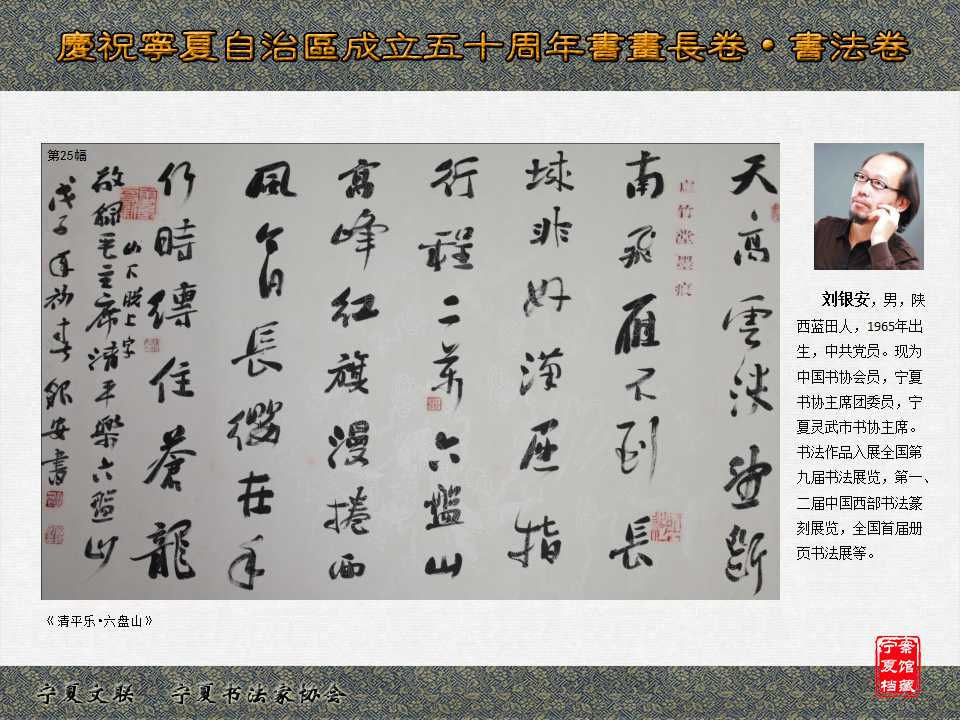 慶祝寧夏自治區成立五十周年書畫長卷•書法卷
第25幅
天高雲淡望斷
南飛雁不到長
虚竹堂墨痕
城非好漢屈指
行程二萬六盤山
高峰紅旗漫捲西
風今日長纓在手
何時縛住蒼龍
山下脱上字
敬録毛主席清平樂六盤山
戊子年初春銀安書
《清平乐•六盘山》
刘银安，男，陕
西蓝田人，1965年出
生，中共党员。现为
中国书协会员，宁夏
书协主席团委员，宁
夏灵武市书协主席。
书法作品入展全国第
九届书法展览，第一、
二届中国西部书法篆
刻展览，全国首届册
页书法展等。
宁夏文联 宁夏书法家协会
宁夏档
案馆藏